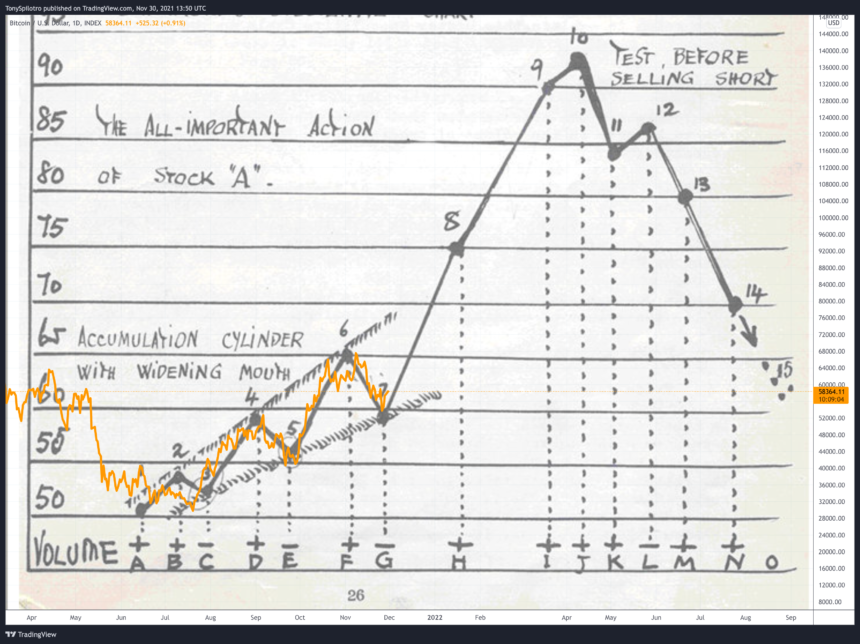 TonySpilotro published on TradingView.com, Nov 30, 2021 13:50 UTC
Bitcoin / U.S. Dollar, 1D, INDEX 58364.11 +525.32 (+0.91%)
CHART
148000.00
USD
144000.00
10
140000.00
90
9
TEST, BEFORE
136000.00
SELLING SHORT
132000.00
128000.00
124000.00
85 THE ALL-IMPORTANT ACTION
11
12
120000.00
116000.00
112000.00
80 OF STOCK "A".
13
108000.00
104000.00
100000.00
75
8
96000.00
92000.00
88000.00
84000.00
70
14
80000.00
76000.00
65 ACCUMULATION CYLINDER
6
72000.00
68000.00
WITH WIDENING MOUTH
15
64000.00
60
4
7
60000.00
58364.11
10:09:04
52000.00
50
2
5
48000.00
44000.00
40000.00
36000.00
50
1
3
32000.00
28000.00
24000.00
VOLUME + + – + – + – + + + + – + +
20000.00
A B C D E F G H I J K L M N O
16000.00
12000.00
26
8000.00
Apr May Jun Jul Aug Sep Oct Nov Dec 2022 Feb Apr May Jun Jul Aug Sep
TradingView